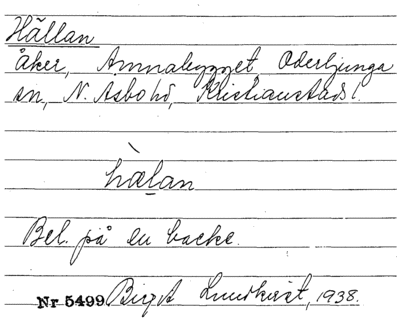 Hällan
åker, Amnabygget Oderljunga
sn, N. Åsbo hd, Kristianstads l.
hælan
Bel. på en backe.
Nr 5499 Birgit Lundkvist, 1938.